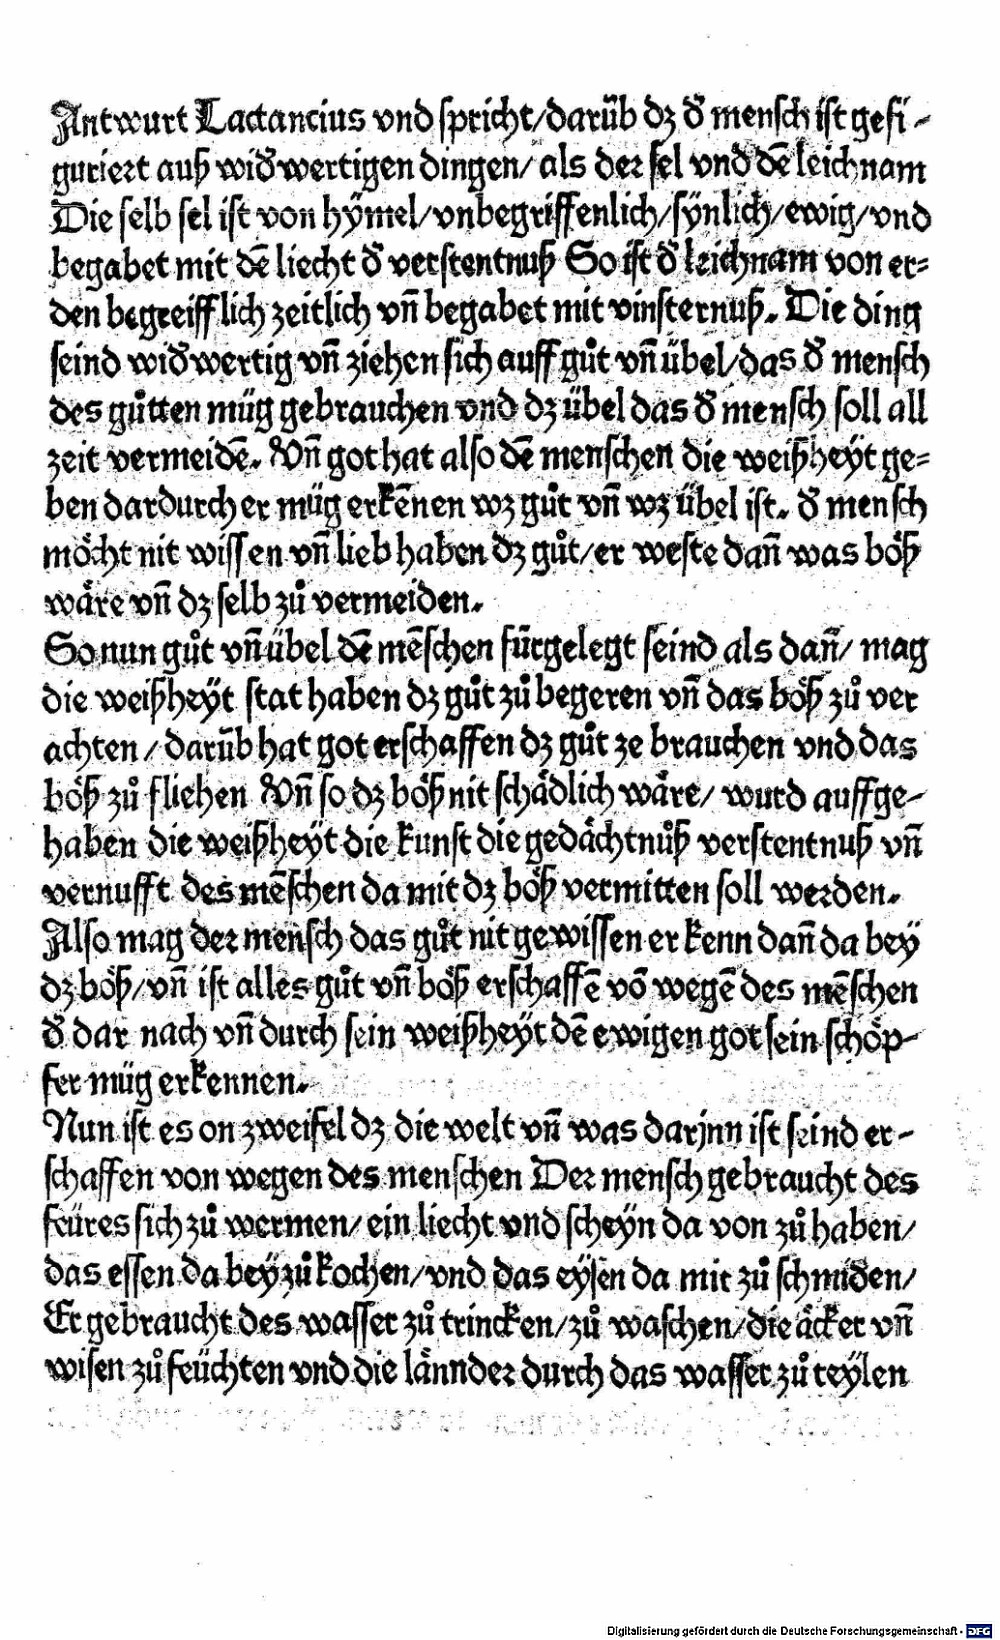 Antwurt Lactancius vnd spricht/darūb dz d' mensch ist gefi-
guriert auß wid'wertigen dingen/ als der sel vnd dē leichnam
Die selb sel ist von hÿmel/vnbegriffenlich/sÿnlich/ewig/vnd
begabet mit dē liecht d' verstentnuß So ist d' leichnam von er=
den begreifflich zeitlich vn̄ begabet mit vinsternuß. Die ding
seind wid'wertig vn̄ ziehen sich auff gůt vn̄ übel/das d' mensch
des gůtten müg gebrauchen vnd dz übel das d' mensch soll all
zeit vermeidē. Vn̄ got hat also dē menschen die weißheÿt ge=
ben dardurch er müg erkēnen wz gůt vn̄ wz übel ist. d' mensch
möcht nit wissen vn̄ lieb haben dz gůt/er weste dan̄ was böß
wäre vn̄ dz selb zů vermeiden.
So nun gůt vn̄ übel dē mēschen fürgelegt seind als dan̄/ mag
die weißheÿt stat haben dz gůt zů begeren vn̄ das böß zů ver
achten/darūb hat got erschaffen dz gůt ze brauchen vnd das
böß zů fliehen Vn̄ so dz böß nit schädlich wäre/ wurd auffge-
haben die weißheÿt die kunst die gedächtnůß verstentnuß vn̄
vernufft des mēschen da mit dz böß vermitten soll werden.
Also mag der mensch das gůt nit gewissen er kenn dan̄ da beÿ
dz böß/vn̄ ist alles gůt vn̄ böß erschaffē vō wegē des mēschen
d' dar nach vn̄ durch sein weißheÿt dē ewigen got sein schöp-
fer müg erkennen.
Nun ist es on zweifel dz die welt vn̄ was darjnn ist seind er-
schaffen von wegen des menschen Der mensch gebraucht des
feüres sich zů wermen/ein liecht vnd scheÿn da von zů haben/
das essen da beÿ zů kochen/vnd das eÿsen da mit zů schmiden/
Er gebraucht des wasser zů trincken/zů waschen/die äcker vn̄
wisen zů feüchten vnd die lännder durch das wasser zů teÿlen
Digitalisierung gefördert durch die Deutsche Forschungsgemeinschaft - DFG